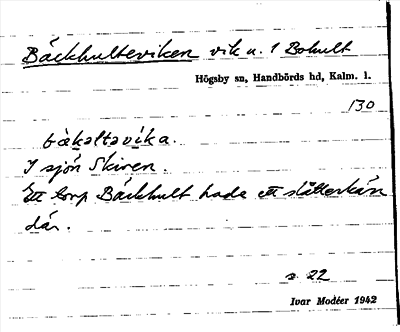 Bäckhulteviken vik u. 1 Bohult
Högsby sn, Handbörds hd, Kalm. l.
130
bȧkaltavíka.
I sjön Skiren.
Ett torp Bäckhult hade ett slåtterkärr
där.
s 22
Ivar Modéer 1942